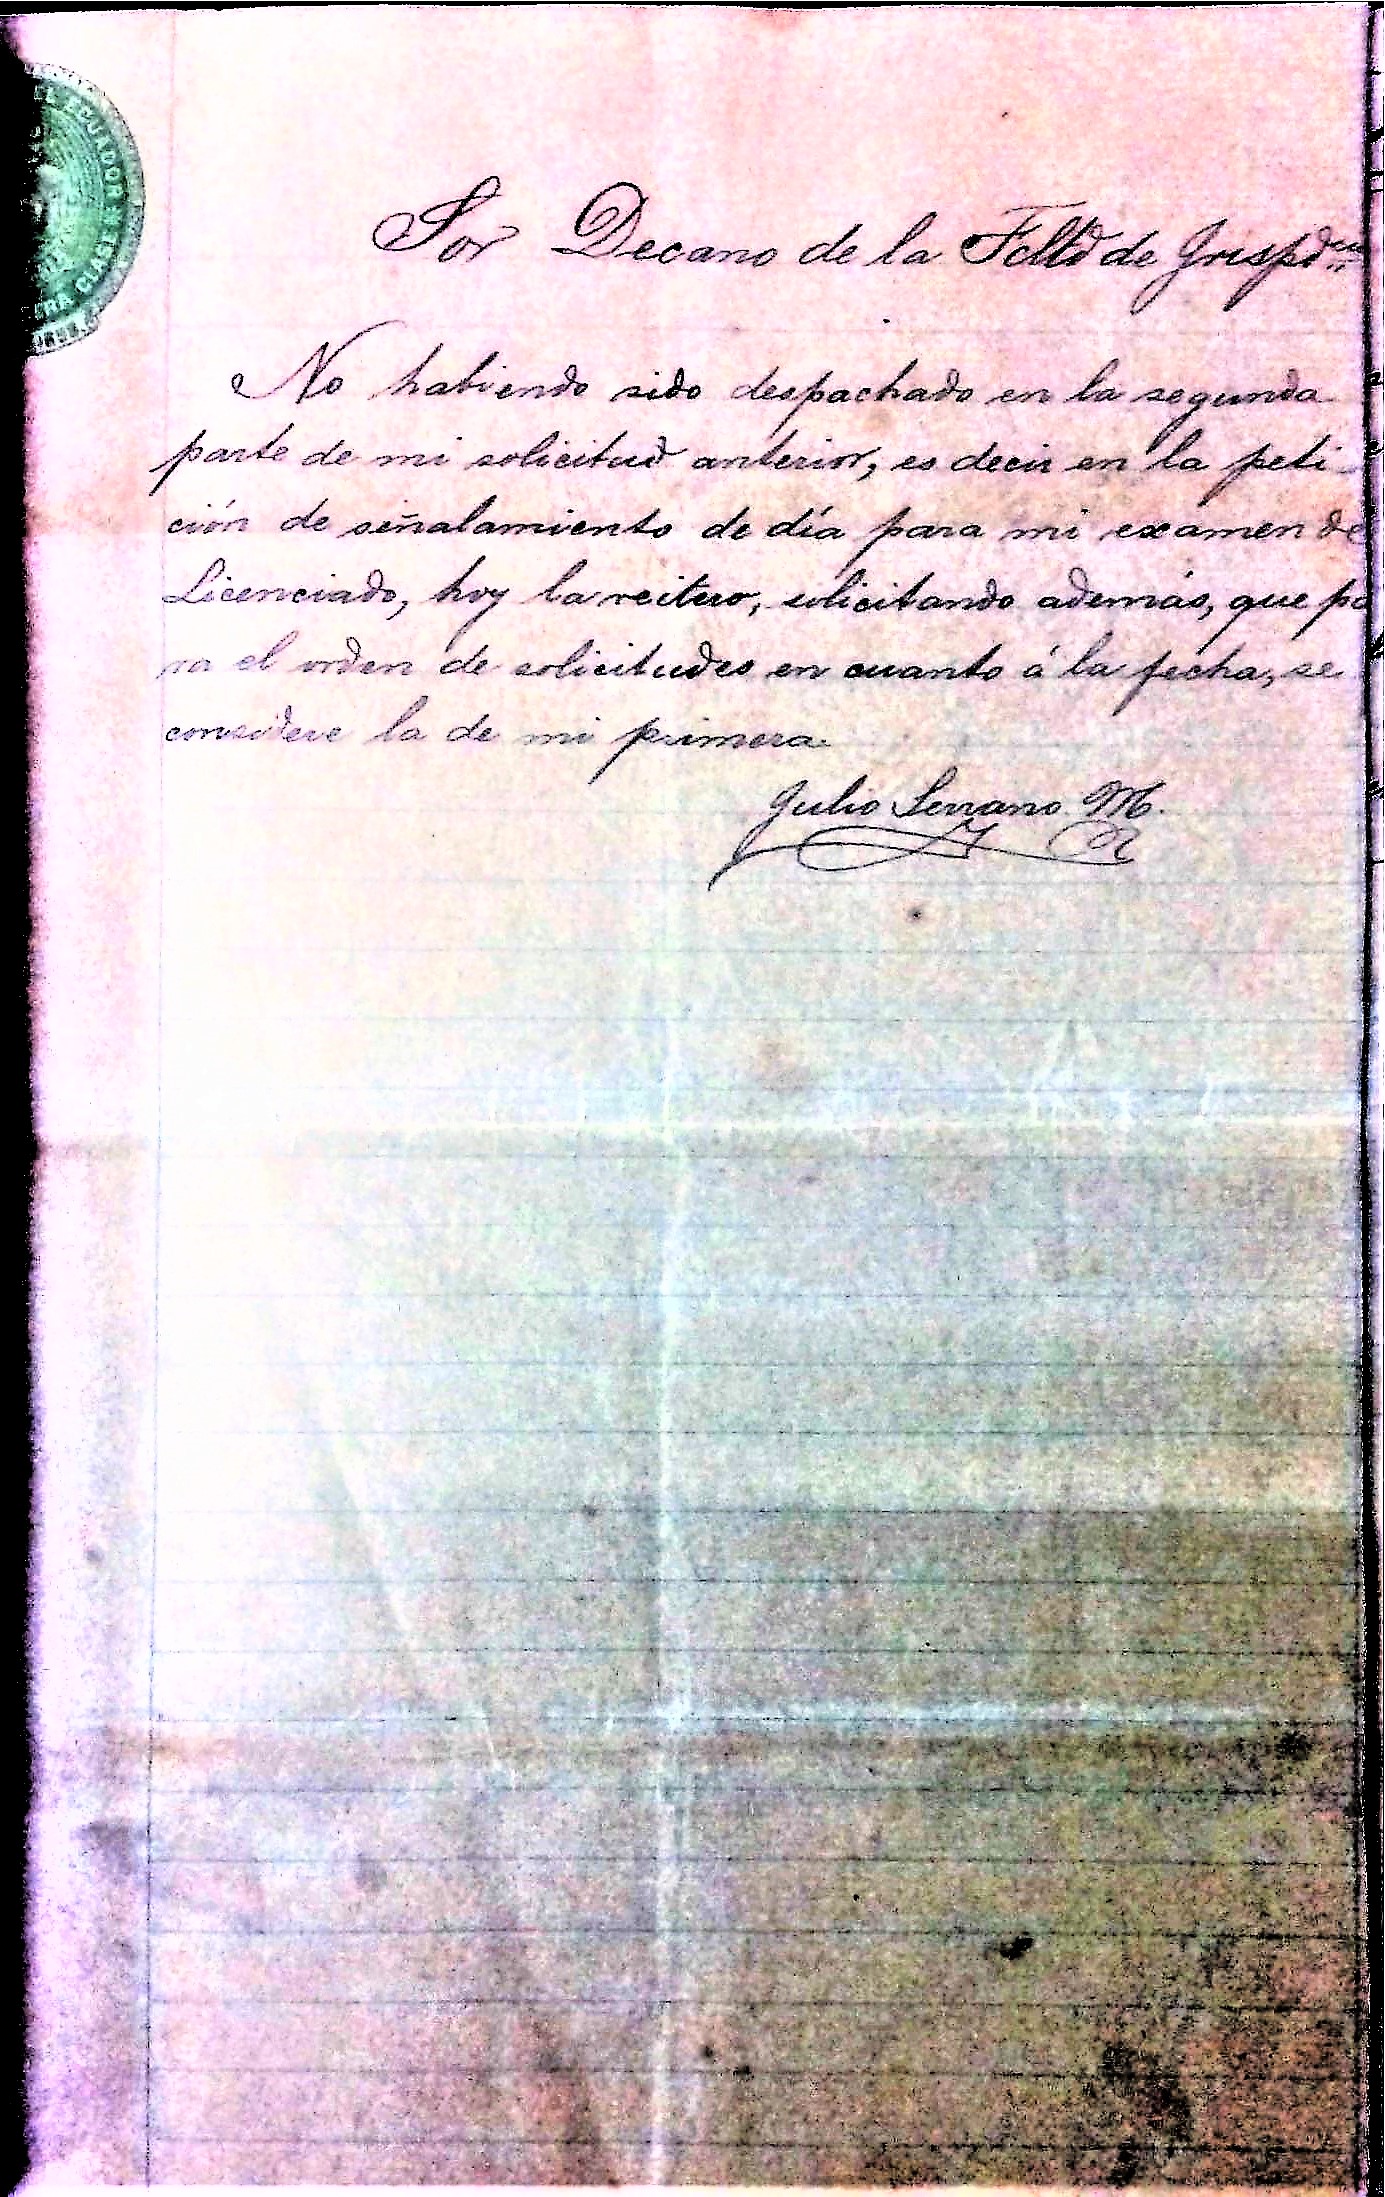 Sor Decano de la Fcltd de Jrispd
No habiendo sido despachado en la segunda
parte de mi solicitud anterior, es decir en la peti
ción de señalamiento de día para mi examen de
Licenciado, hoy la reitero, solicitando además, que pa
ra el orden de solicitudes en cuanto á la fecha, se
considere la de mi primera.
Julio Serrano M.